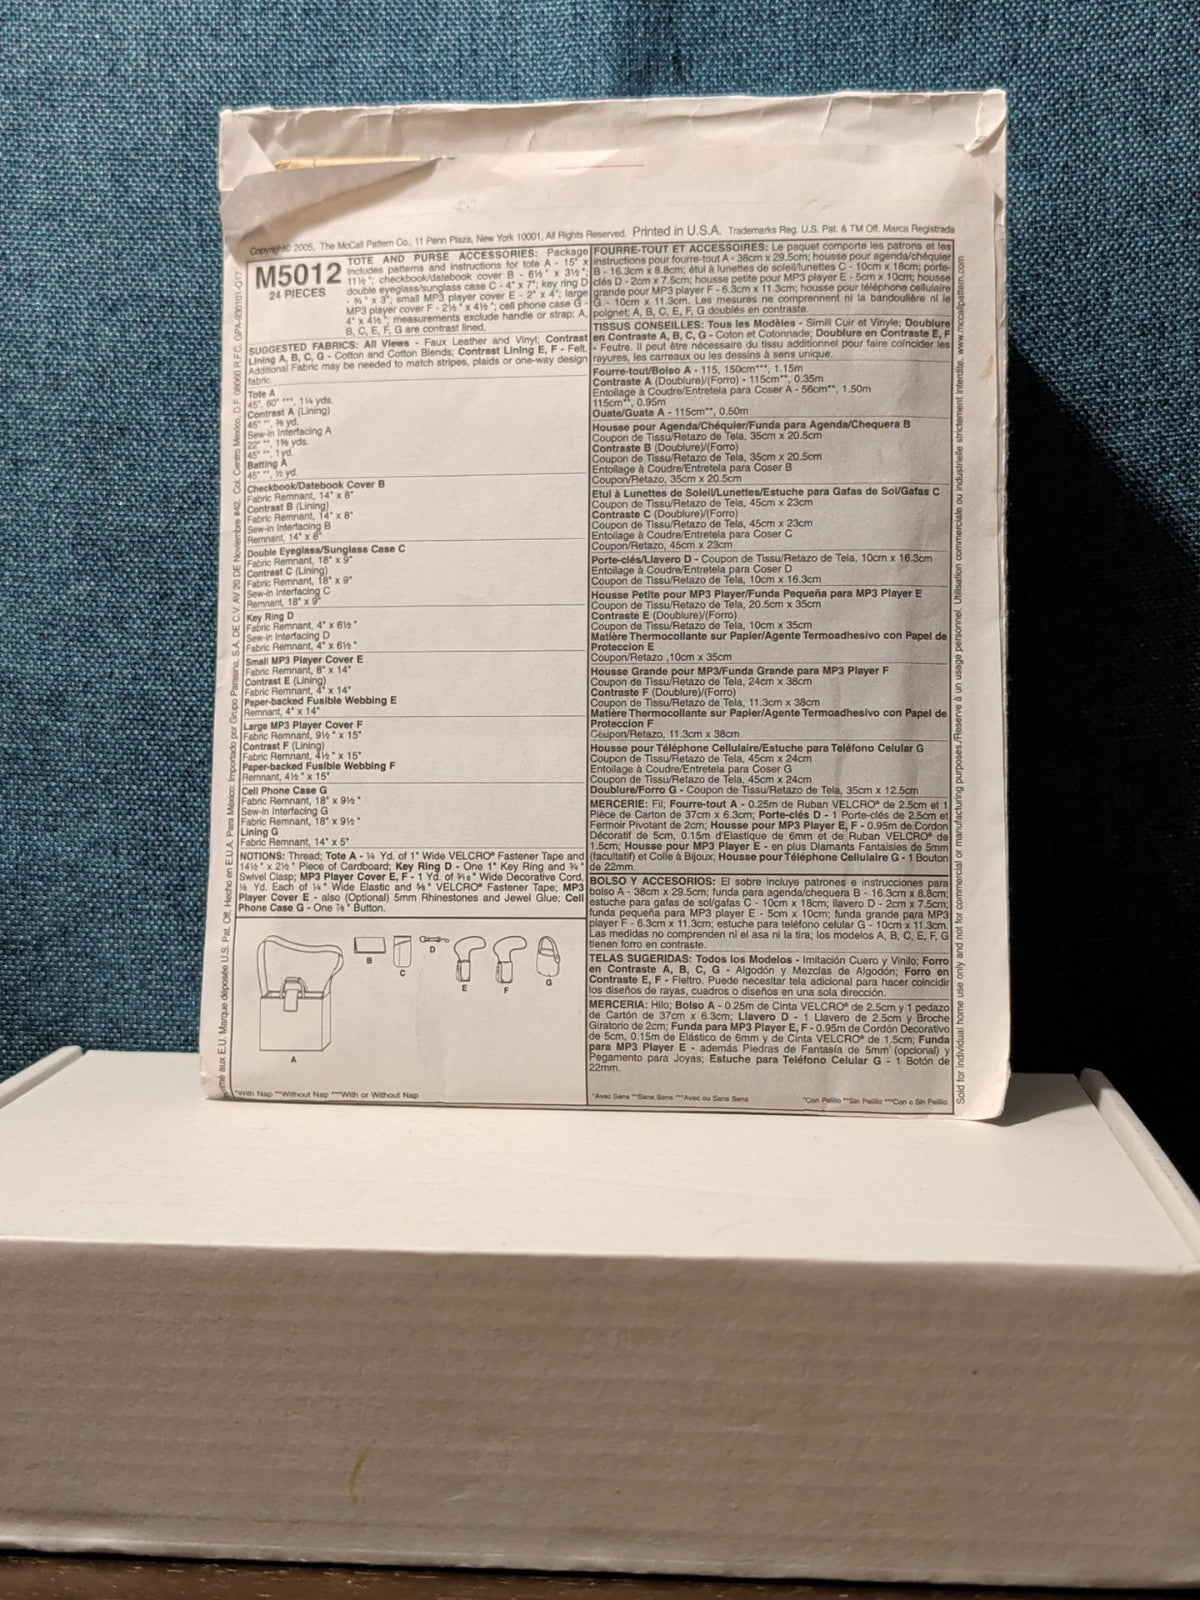 Copyright© 2005, The McCall Pattern Co., 11 Penn Plaza, New York 10001, All Rights Reserved. Printed in U.S.A. Trademarks Reg. U.S. Pat. & TM Off. Marca Registrada
M5012
24 PIECES
TOTE AND PURSE ACCESSORIES: Package
includes patterns and instructions for tote A - 15" x
11½"; checkbook/datebook cover B - 6½" x 3½";
double eyeglass/sunglass case C - 4" x 7"; key ring D
- ¾" x 3"; small MP3 player cover E - 2" x 4"; large
MP3 player cover F - 2½" x 4½"; cell phone case G -
4" x 4½"; measurements exclude handle or strap; A,
B, C, E, F, G are contrast lined.
SUGGESTED FABRICS: All Views - Faux Leather and Vinyl; Contrast
Lining A, B, C, G - Cotton and Cotton Blends; Contrast Lining E, F - Felt.
Additional Fabric may be needed to match stripes, plaids or one-way design
fabric.
Tote A
45", 60" ***, 1¼ yds.
Contrast A (Lining)
45" **, ⅜ yd.
Sew-in Interfacing A
22" **, 1⅝ yds.
45" **, 1 yd.
Batting A
45" **, ½ yd.
Checkbook/Datebook Cover B
Fabric Remnant, 14" x 8"
Contrast B (Lining)
Fabric Remnant, 14" x 8"
Sew-in Interfacing B
Remnant, 14" x 8"
Double Eyeglass/Sunglass Case C
Fabric Remnant, 18" x 9"
Contrast C (Lining)
Fabric Remnant, 18" x 9"
Sew-in Interfacing C
Remnant, 18" x 9"
Key Ring D
Fabric Remnant, 4" x 6½"
Sew-in Interfacing D
Fabric Remnant, 4" x 6½"
Small MP3 Player Cover E
Fabric Remnant, 8" x 14"
Contrast E (Lining)
Fabric Remnant, 4" x 14"
Paper-backed Fusible Webbing E
Remnant, 4" x 14"
Large MP3 Player Cover F
Fabric Remnant, 9½" x 15"
Contrast F (Lining)
Fabric Remnant, 4½" x 15"
Paper-backed Fusible Webbing F
Remnant, 4½" x 15"
Cell Phone Case G
Fabric Remnant, 18" x 9½"
Sew-in Interfacing G
Fabric Remnant, 18" x 9½"
Lining G
Fabric Remnant, 14" x 5"
NOTIONS: Thread; Tote A - ¼ Yd. of 1" Wide VELCRO® Fastener Tape and
14½" x 2½" Piece of Cardboard; Key Ring D - One 1" Key Ring and ¾"
Swivel Clasp; MP3 Player Cover E, F - 1 Yd. of ³⁄₁₆" Wide Decorative Cord,
⅛ Yd. Each of ¼" Wide Elastic and ⅝" VELCRO® Fastener Tape; MP3
Player Cover E - also (Optional) 5mm Rhinestones and Jewel Glue; Cell
Phone Case G - One ⅞" Button.
A
B
C
D
E
F
G
*With Nap **Without Nap ***With or Without Nap
FOURRE-TOUT ET ACCESSOIRES: Le paquet comporte les patrons et les
instructions pour fourre-tout A - 38cm x 29.5cm; housse pour agenda/chéquier
B - 16.3cm x 8.8cm; étui à lunettes de soleil/lunettes C - 10cm x 18cm; porte-
clés D - 2cm x 7.5cm; housse petite pour MP3 player E - 5cm x 10cm; housse
grande pour MP3 player F - 6.3cm x 11.3cm; housse pour téléphone cellulaire
G - 10cm x 11.3cm. Les mesures ne comprennent ni la bandoulière ni le
poignet; A, B, C, E, F, G doublés en contraste.
TISSUS CONSEILLES: Tous les Modèles - Simili Cuir et Vinyle; Doublure
en Contraste A, B, C, G - Coton et Cotonnade; Doublure en Contraste E, F
- Feutre. Il peut être nécessaire du tissu additionnel pour faire coïncider les
rayures, les carreaux ou les dessins à sens unique.
Fourre-tout/Bolso A - 115, 150cm***, 1.15m
Contraste A (Doublure)/(Forro) - 115cm**, 0.35m
Entoilage à Coudre/Entretela para Coser A - 56cm**, 1.50m
115cm**, 0.95m
Ouate/Guata A - 115cm**, 0.50m
Housse pour Agenda/Chéquier/Funda para Agenda/Chequera B
Coupon de Tissu/Retazo de Tela, 35cm x 20.5cm
Contraste B (Doublure)/(Forro)
Coupon de Tissu/Retazo de Tela, 35cm x 20.5cm
Entoilage à Coudre/Entretela para Coser B
Coupon/Retazo, 35cm x 20.5cm
Etui à Lunettes de Soleil/Lunettes/Estuche para Gafas de Sol/Gafas C
Coupon de Tissu/Retazo de Tela, 45cm x 23cm
Contraste C (Doublure)/(Forro)
Coupon de Tissu/Retazo de Tela, 45cm x 23cm
Entoilage à Coudre/Entretela para Coser C
Coupon/Retazo, 45cm x 23cm
Porte-clés/Llavero D - Coupon de Tissu/Retazo de Tela, 10cm x 16.3cm
Entoilage à Coudre/Entretela para Coser D
Coupon de Tissu/Retazo de Tela, 10cm x 16.3cm
Housse Petite pour MP3 Player/Funda Pequeña para MP3 Player E
Coupon de Tissu/Retazo de Tela, 20.5cm x 35cm
Contraste E (Doublure)/(Forro)
Coupon de Tissu/Retazo de Tela, 10cm x 35cm
Matière Thermocollante sur Papier/Agente Termoadhesivo con Papel de
Proteccion E
Coupon/Retazo ,10cm x 35cm
Housse Grande pour MP3/Funda Grande para MP3 Player F
Coupon de Tissu/Retazo de Tela, 24cm x 38cm
Contraste F (Doublure)/(Forro)
Coupon de Tissu/Retazo de Tela, 11.3cm x 38cm
Matière Thermocollante sur Papier/Agente Termoadhesivo con Papel de
Proteccion F
Coupon/Retazo, 11.3cm x 38cm
Housse pour Téléphone Cellulaire/Estuche para Teléfono Celular G
Coupon de Tissu/Retazo de Tela, 45cm x 24cm
Entoilage à Coudre/Entretela para Coser G
Coupon de Tissu/Retazo de Tela, 45cm x 24cm
Doublure/Forro G - Coupon de Tissu/Retazo de Tela, 35cm x 12.5cm
MERCERIE: Fil; Fourre-tout A - 0.25m de Ruban VELCRO® de 2.5cm et 1
Pièce de Carton de 37cm x 6.3cm; Porte-clés D - 1 Porte-clés de 2.5cm et
Fermoir Pivotant de 2cm; Housse pour MP3 Player E, F - 0.95m de Cordon
Décoratif de 5cm, 0.15m d'Elastique de 6mm et de Ruban VELCRO® de
1.5cm; Housse pour MP3 Player E - en plus Diamants Fantaisies de 5mm
(facultatif) et Colle à Bijoux; Housse pour Téléphone Cellulaire G - 1 Bouton
de 22mm.
BOLSO Y ACCESORIOS: El sobre incluye patrones e instrucciones para
bolso A - 38cm x 29.5cm; funda para agenda/chequera B - 16.3cm x 8.8cm;
estuche para gafas de sol/gafas C - 10cm x 18cm; llavero D - 2cm x 7.5cm;
funda pequeña para MP3 player E - 5cm x 10cm; funda grande para MP3
player F - 6.3cm x 11.3cm; estuche para teléfono celular G - 10cm x 11.3cm.
Las medidas no comprenden ni el asa ni la tira; los modelos A, B, C, E, F, G
tienen forro en contraste.
TELAS SUGERIDAS: Todos los Modelos - Imitación Cuero y Vinilo; Forro
en Contraste A, B, C, G - Algodón y Mezclas de Algodón; Forro en
Contraste E, F - Fieltro. Puede necesitar tela adicional para hacer coincidir
los diseños de rayas, cuadros o diseños en una sola dirección.
MERCERIA: Hilo; Bolso A - 0.25m de Cinta VELCRO® de 2.5cm y 1 pedazo
de Cartón de 37cm x 6.3cm; Llavero D - 1 Llavero de 2.5cm y Broche
Giratorio de 2cm; Funda para MP3 Player E, F - 0.95m de Cordón Decorativo
de 5cm, 0.15m de Elástico de 6mm y de Cinta VELCRO® de 1.5cm; Funda
para MP3 Player E - además Piedras de Fantasía de 5mm (opcional) y
Pegamento para Joyas; Estuche para Teléfono Celular G - 1 Botón de
22mm.
*Avec Sens **Sans Sens ***Avec ou Sans Sens
*Con Pelillo **Sin Pelillo ***Con o Sin Pelillo
aux E.U. Marque déposée U.S. Pat. Off. Hecho en E.U.A. Para México: Importado por Grupo Parasina, S.A. DE C.V. AV 20 DE Noviembre #42, Col. Centro Mexico, D.F. 06060 R.F.C. GPA-930101-Q17
Sold for individual home use only and not for commercial or manufacturing purposes./Réservé à un usage personnel. Utilisation commerciale ou industrielle strictement interdite. www.mccallpattern.com